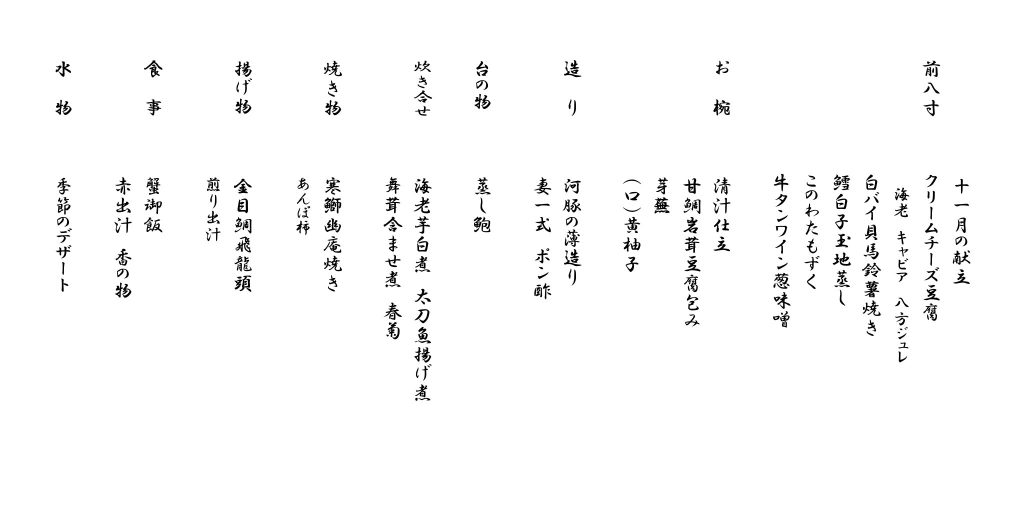 十一月の献立
前八寸　クリームチーズ豆腐
海老　キャビア　八方ジュレ
白バイ貝馬鈴薯焼き
鱈白子玉地蒸し
このわたもずく
牛タンワイン葱味噌
お椀　清汁仕立
甘鯛岩茸豆腐包み
芽蕪
（口）黄柚子
造り　河豚の薄造り
妻一式　ポン酢
台の物　蒸し鮑
炊き合せ　海老芋白煮　太刀魚揚げ煮
舞茸含ませ煮　春菊
焼き物　寒鰤幽庵焼き
あんぽ柿
揚げ物　金目鯛飛龍頭
煎り出汁
食事　蟹御飯
赤出汁　香の物
水物　季節のデザート